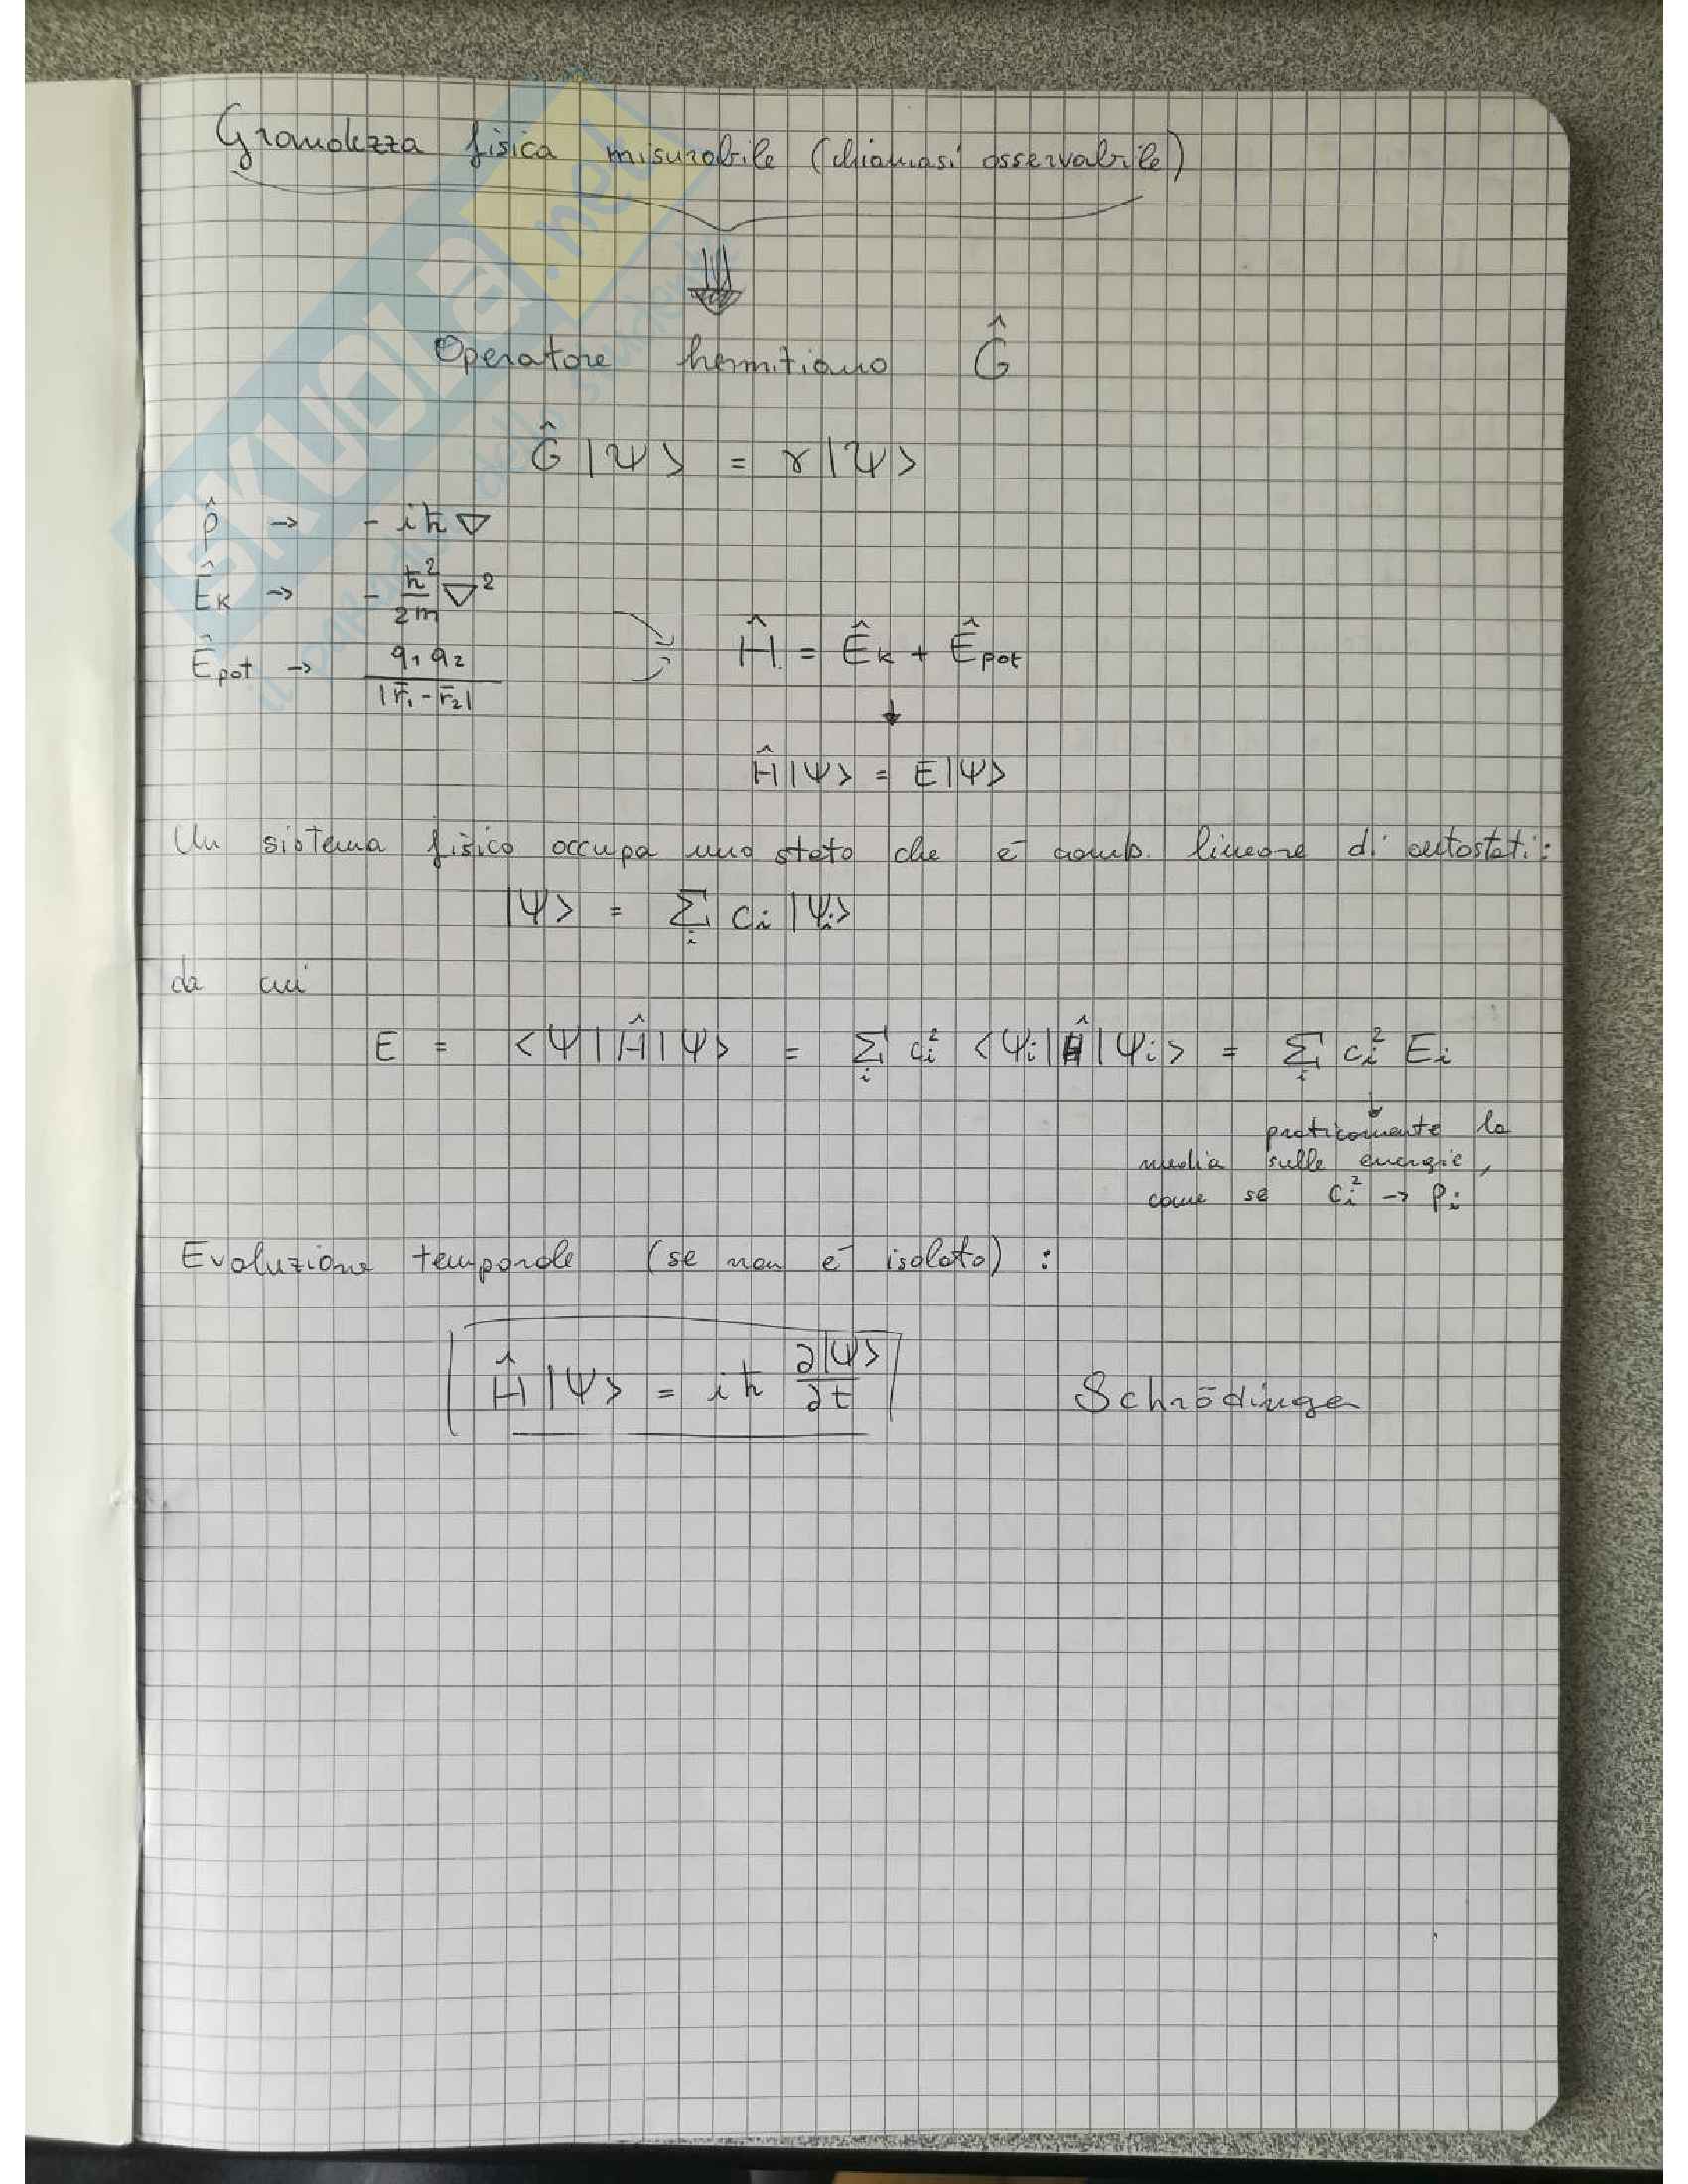 Grandezza fisica misurabile (chiamasi osservabile)
Operatore hermitiano Ĝ
Ĝ |Ψ> = γ |Ψ>
p̂ → - iħ∇
Ê_K → - ħ²/2m ∇²
Ê_pot → q₁ q₂ / |r̄₁ - r̄₂|
Ĥ = Ê_K + Ê_pot
Ĥ |Ψ> = E |Ψ>
Un sistema fisico occupa uno stato che è comb. lineare di autostati:
|Ψ> = Σ_i c_i |Ψ_i>
da cui
E = <Ψ| Ĥ |Ψ> = Σ_i c_i² <Ψ_i| Ĥ |Ψ_i> = Σ_i c_i² E_i
praticamente la
media sulle energie,
come se c_i² → p_i
Evoluzione temporale (se non è isolato) :
Ĥ |Ψ> = iħ ∂|Ψ>/∂t Schrödinger
SKUOLA.net